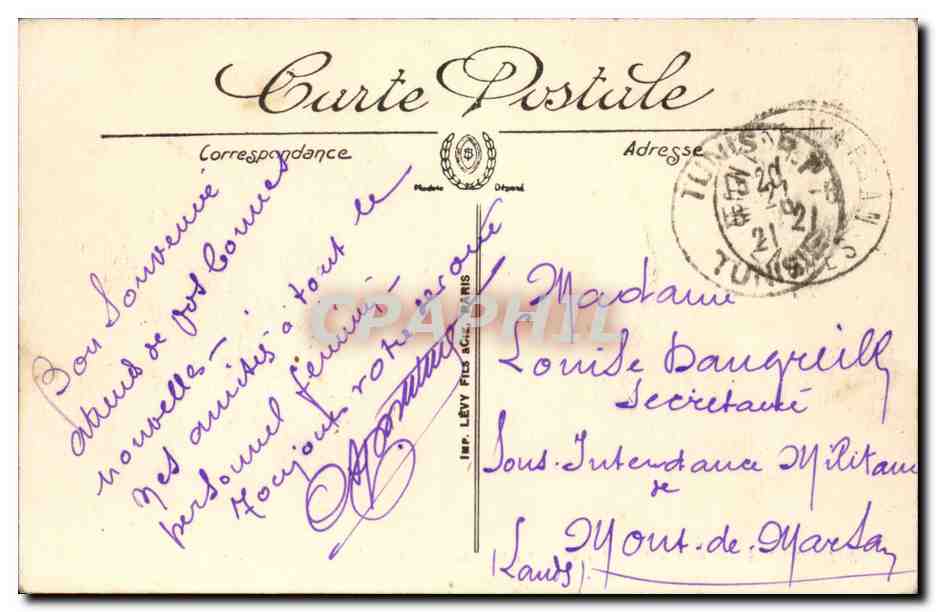 Carte Postale
Correspondance
Adresse
Modèle Déposé
TUNIS R.P
TUNISIE
21
Bon Souvenir
attends de vos bonnes
nouvelles -
Mes amitiés à tout le
personnel féminin -
Toujours votre
IMP. LÉVY FILS & CIE, PARIS
Madame
Louise Daugreilh
Secrétaire
Sous-Intendance Militaire
de
Mont-de-Marsan
(Landes).
CPAPHIL